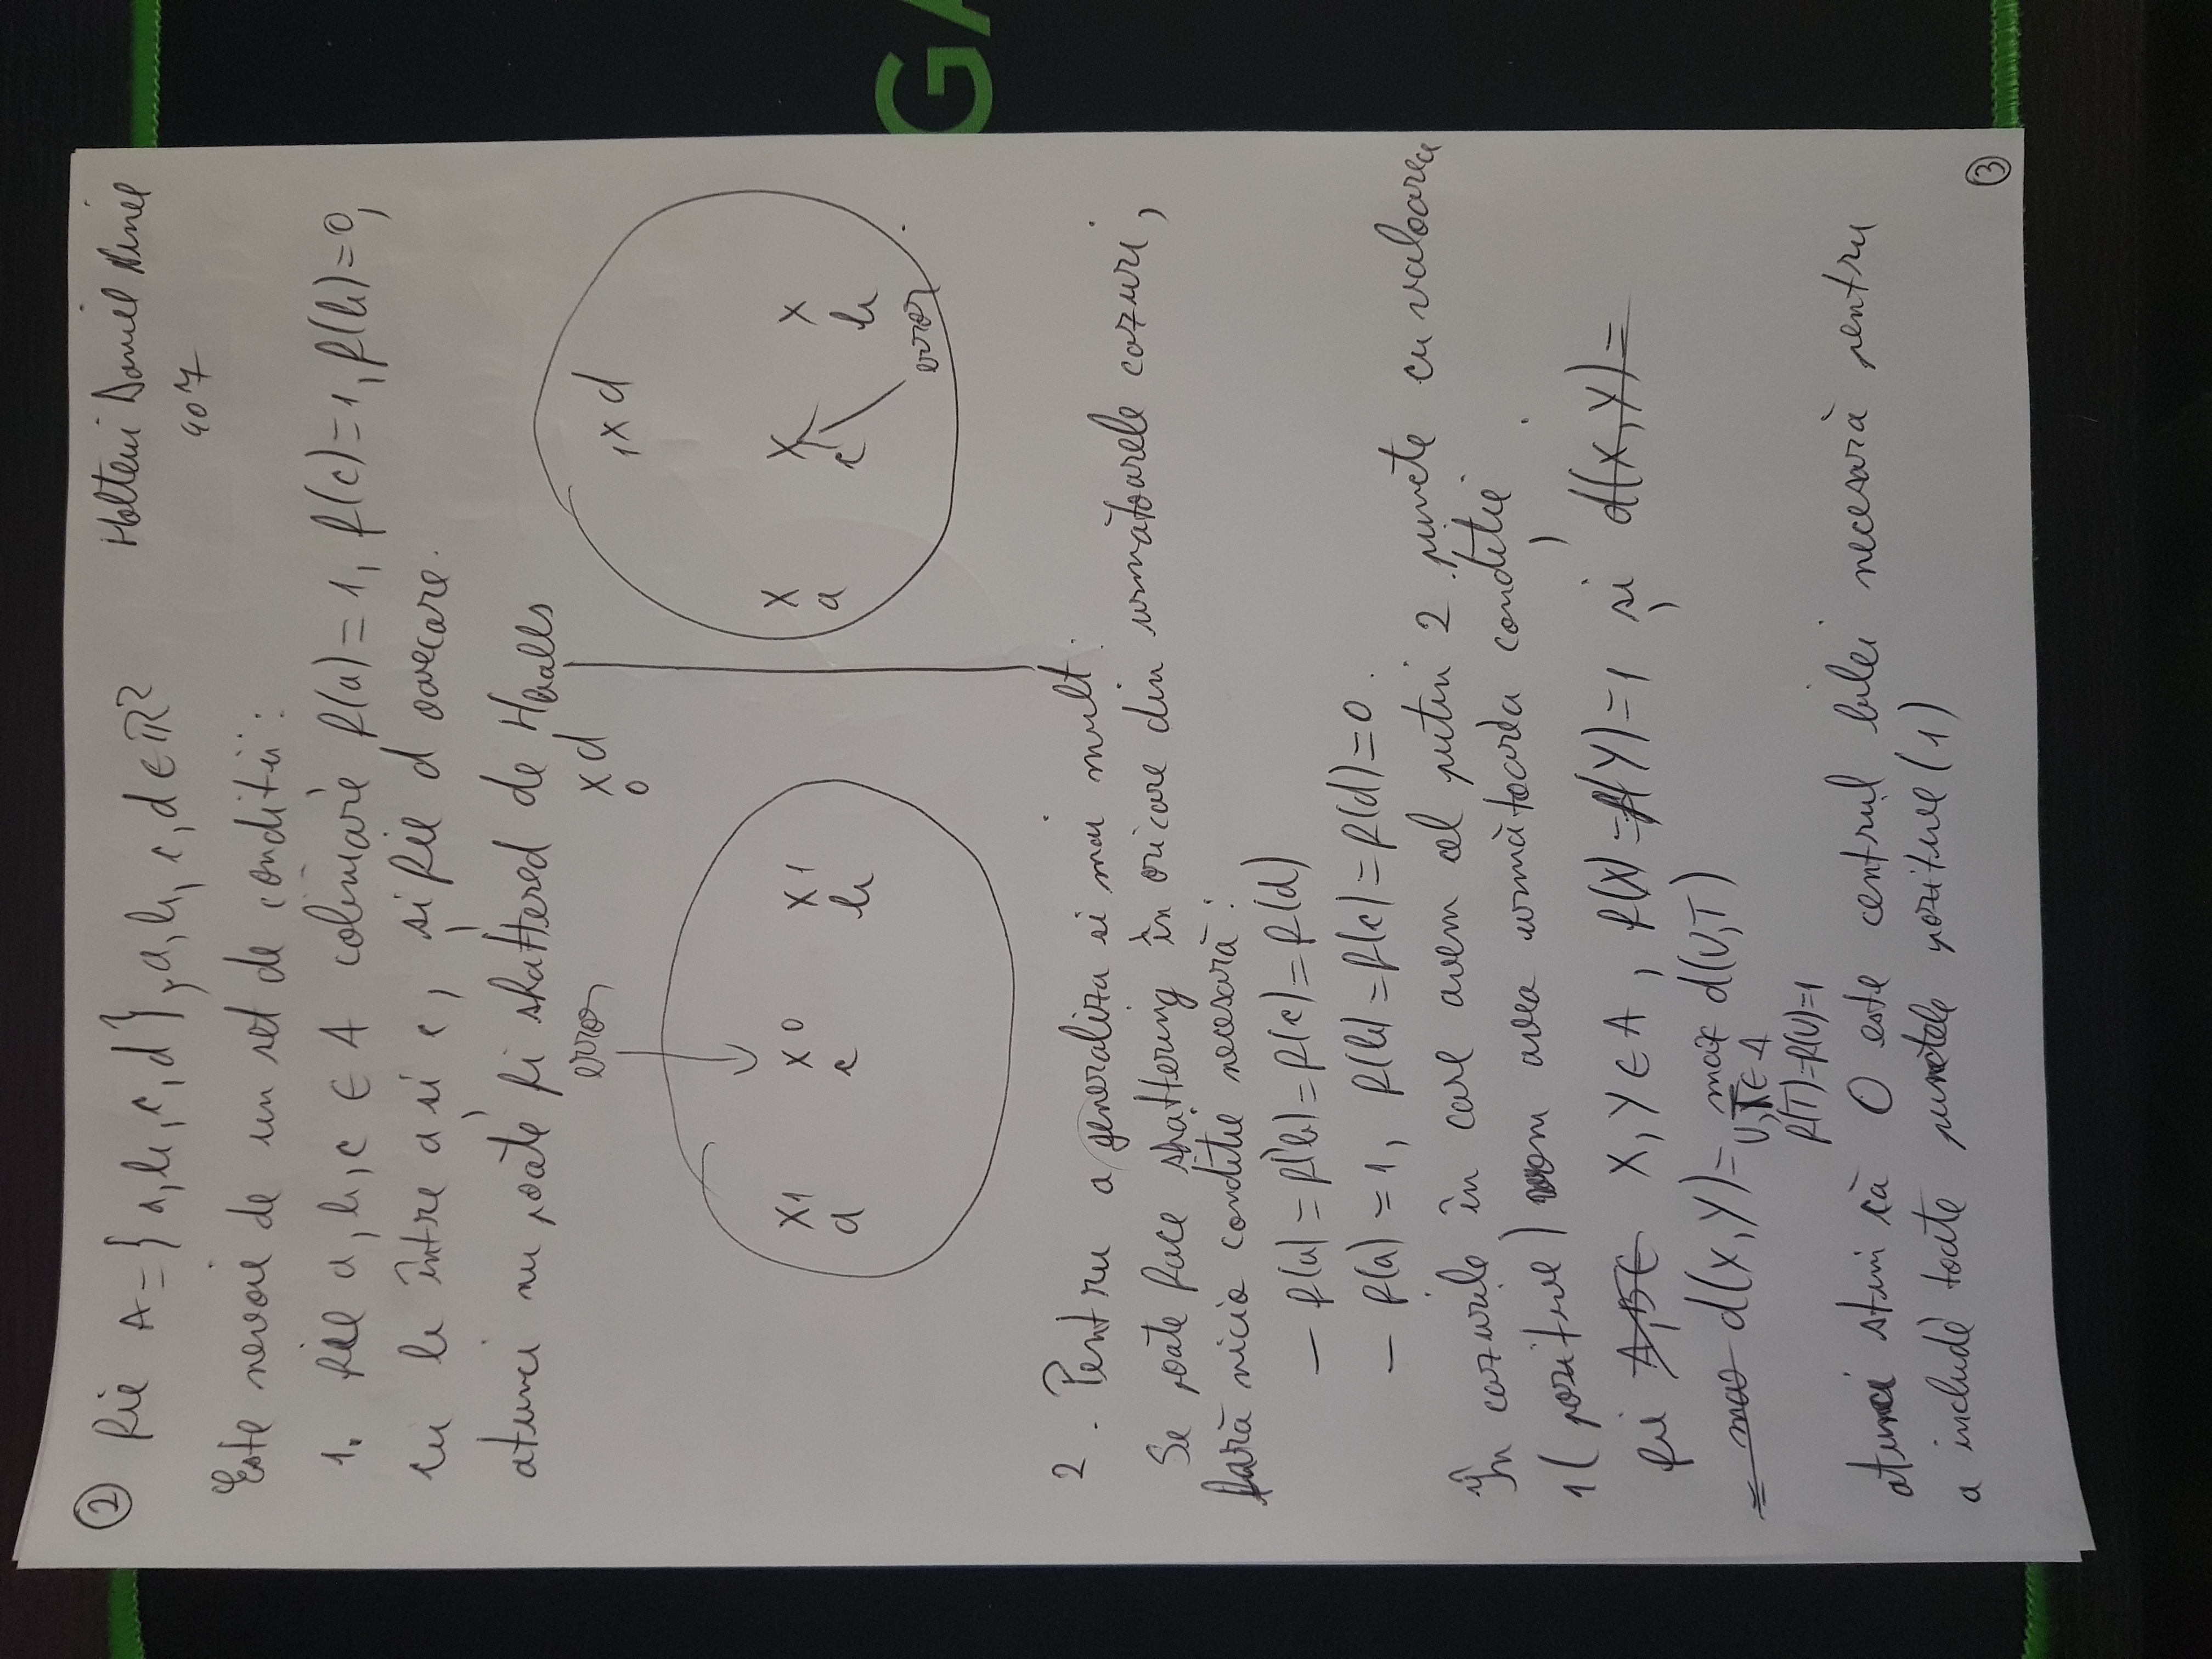 ② Fie A = {a, b, c, d}, a, b, c, d ∈ ℝ²
Holteiu Daniel Ninel
407
Este nevoie de un set de conditii:
1. Fie a, b, c ∈ A coliniare f(a) = 1, f(c) = 1, f(b) = 0,
cu b între a și c, și fie d oarecare.
atunci nu poate fi shattered de Hballs
error
x d
0
x1 a
x0 c
x1 b
1x d
x a
x c
x b
error
GA
2. Pentru a generaliza si mai mult:
Se poate face shattering în oricare din următoarele cazuri,
fară nicio conditie necesară:
— f(a) = f(b) = f(c) = f(d)
— f(a) = 1, f(b) = f(c) = f(d) = 0.
În cazurile în care avem cel putin 2 puncte cu valoarea
1 (pozitive) vom avea următoarea condiție
fie A, B ∈ X, Y ∈ A, f(X) = f(Y) = 1 și d(X, Y) =
= max d(X, Y) = max d(U, T)
U, T ∈ A
f(T) = f(U) = 1
atunci stim că O este centrul bilei necesară pentru
a include toate punctele pozitive (1)
③